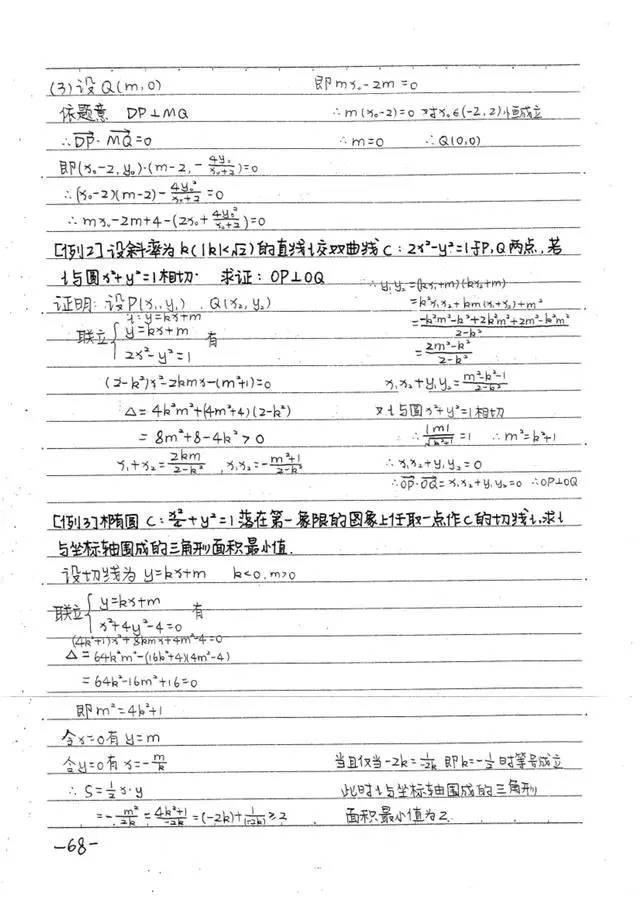 (3)设Q(m,0)
依题意 DP⊥MQ
∴DP·MQ=0
即(x₀-2,y₀)·(m-2,-4y₀/(x₀+2))=0
∴(x₀-2)(m-2)-4y₀²/(x₀+2)=0
∴mx₀-2m+4-(2x₀+4y₀²/(x₀+2))=0
即mx₀-2m=0
∴m(x₀-2)=0 对x₀∈(-2,2)恒成立
∴m=0 ∴Q(0,0)
[例2]设斜率为k(|k|<√2)的直线l交双曲线C:2x²-y²=1于P,Q两点,若
l与圆x²+y²=1相切. 求证:OP⊥OQ
证明:设P(x₁,y₁),Q(x₂,y₂)
l:y=kx+m
联立{y=kx+m
2x²-y²=1 有
(2-k²)x²-2kmx-(m²+1)=0
Δ=4k²m²+(4m²+4)(2-k²)
=8m²+8-4k²>0
x₁+x₂=2km/(2-k²),x₁x₂=-(m²+1)/(2-k²)
∴y₁y₂=(kx₁+m)(kx₂+m)
=k²x₁x₂+km(x₁+x₂)+m²
=(-k²m²-k²+2k²m²+2m²-k²m²)/(2-k²)
=(2m²-k²)/(2-k²)
x₁x₂+y₁y₂=(m²-k²-1)/(2-k²)
又l与圆x²+y²=1相切
∴|m|/√(k²+1)=1 ∴m²=k²+1
∴x₁x₂+y₁y₂=0
∴OP·OQ=x₁x₂+y₁y₂=0 ∴OP⊥OQ
[例3]椭圆C:x²/4+y²=1落在第一象限的图象上任取一点作C的切线l,求l
与坐标轴围成的三角形面积最小值.
设切线为y=kx+m k<0,m>0
联立{y=kx+m
x²+4y²-4=0 有
(4k²+1)x²+8kmx+4m²-4=0
Δ=64k²m²-(16k²+4)(4m²-4)
=64k²-16m²+16=0
即m²=4k²+1
令x=0有y=m
令y=0有x=-m/k
∴S=½x·y
=-m²/2k=(4k²+1)/-2k=(-2k)+1/(-2k)≥2
当且仅当-2k=1/-2k即k=-½时等号成立
此时l与坐标轴围成的三角形
面积最小值为2.
-68-